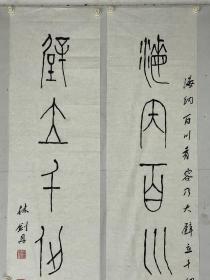 海內百川
海纳百川有容乃大壁立千仞
壁立千仞
林剑丹